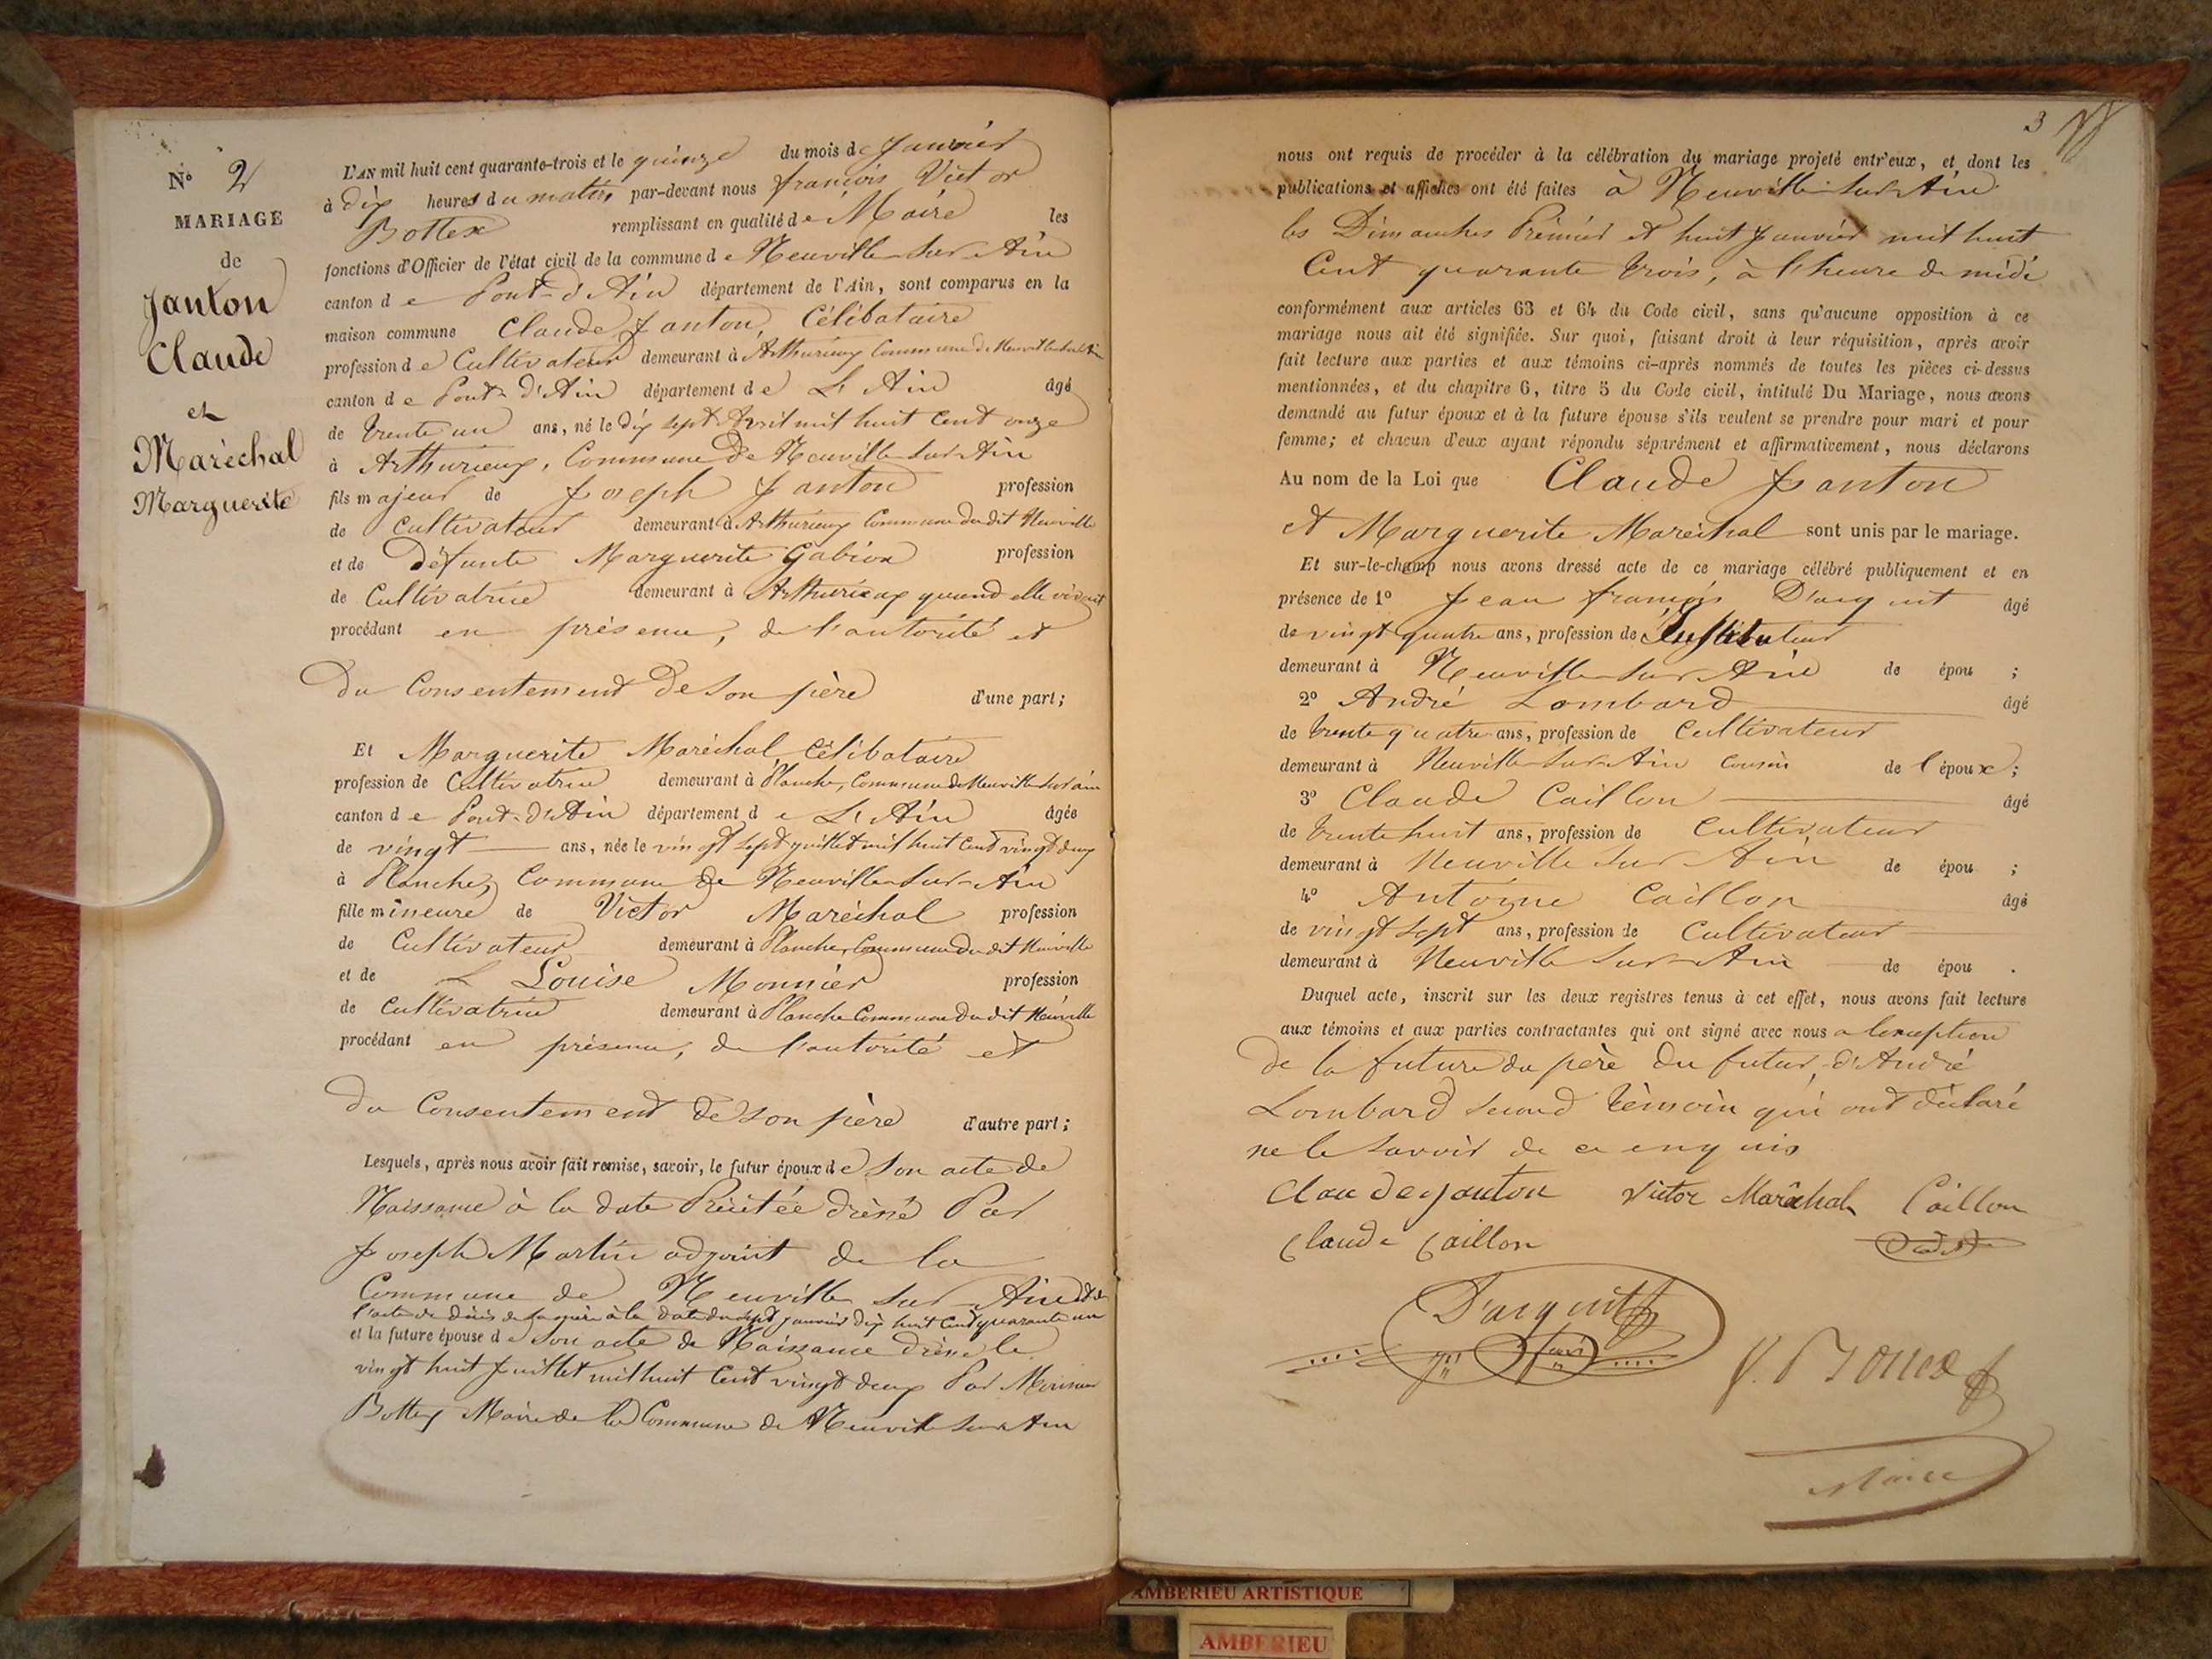 N° 2
MARIAGE
de
Janton
Claude
et
Maréchal
Marguerite
L'AN mil huit cent quarante-trois et le quinze du mois de Janvier
à dix heures du matin, par-devant nous françois Victor
Bottex remplissant en qualité de Maire les
fonctions d'Officier de l'état civil de la commune de Neuville sur Ain
canton de Pont-d'Ain département de l'Ain, sont comparus en la
maison commune Claude Janton, Célibataire
profession de Cultivateur demeurant à Arthurieux Commune de Neuville sur Ain
canton de Pont-d'Ain département de L'Ain âgé
de trente un ans, né le dix sept Avril mil huit Cent onze
à Arthurieux, Commune de Neuville sur Ain
fils majeur de Joseph Janton profession
de Cultivateur demeurant à Arthurieux Commune du dit Neuville
et de défunte Marguerite Gabion profession
de Cultivatrice demeurant à Arthurieux quand elle vivait
procédant en présence, de l'autorité et
du Consentement de son père d'une part;
Et Marguerite Maréchal Célibataire
profession de Cultivatrice demeurant à Planche, Commune de Neuville sur ain
canton de Pont-d'Ain département de L'Ain âgée
de vingt ans, née le vingt sept juillet mil huit Cent vingt deux
à Planche, Commune de Neuville sur Ain
fille mineure de Victor Maréchal profession
de Cultivateur demeurant à Planche, Commune du dit Neuville
et de Louise Monnier profession
de Cultivatrice demeurant à Planche Commune du dit Neuville
procédant en présence, de l'autorité et
du Consentement de son père d'autre part;
Lesquels, après nous avoir fait remise, savoir, le futur époux de son acte de
Naissance à la date Précitée dressé Par
Joseph Martin adjoint de la
Commune de Neuville sur Ain et de
l'acte de décès de sa mère à la date du sept janvier dix huit Cent quarante un
et la future épouse de son acte de Naissance dressé le
vingt huit Juillet mil huit Cent vingt deux Par Monsieur
Bottex Maire de la Commune de Neuville sur Ain
3
nous ont requis de procéder à la célébration du mariage projeté entr'eux, et dont les
publications et affiches ont été faites à Neuville sur Ain
les Dimanches Premier et huit Janvier mil huit
Cent quarante trois, à l'heure de midi
conformément aux articles 63 et 64 du Code civil, sans qu'aucune opposition à ce
mariage nous ait été signifiée. Sur quoi, faisant droit à leur réquisition, après avoir
fait lecture aux parties et aux témoins ci-après nommés de toutes les pièces ci-dessus
mentionnées, et du chapitre 6, titre 5 du Code civil, intitulé Du Mariage, nous avons
demandé au futur époux et à la future épouse s'ils veulent se prendre pour mari et pour
femme; et chacun d'eux ayant répondu séparément et affirmativement, nous déclarons
Au nom de la Loi que Claude Janton
et Marguerite Maréchal sont unis par le mariage.
Et sur-le-champ nous avons dressé acte de ce mariage célébré publiquement et en
présence de 1° Jean françois D'arguit âgé
de vingt quatre ans, profession de Instituteur
demeurant à Neuville sur Ain de épou ;
2° André Lombard âgé
de trente quatre ans, profession de Cultivateur
demeurant à Neuville sur Ain Cousin de l'époux;
3° Claude Caillon âgé
de trente huit ans, profession de Cultivateur
demeurant à Neuville sur Ain de épou ;
4° Antoine Caillon âgé
de vingt sept ans, profession de Cultivateur
demeurant à Neuville sur Ain de épou .
Duquel acte, inscrit sur les deux registres tenus à cet effet, nous avons fait lecture
aux témoins et aux parties contractantes qui ont signé avec nous a lexception
de la future du père du futur, d'André
Lombard second témoin qui ont déclaré
ne le savoir de ce enquis
Claude janton Victor Maréchal Caillon
Claude Caillon
D'arguit
V. Bottex
Maire
AMBERIEU ARTISTIQUE
AMBERIEU